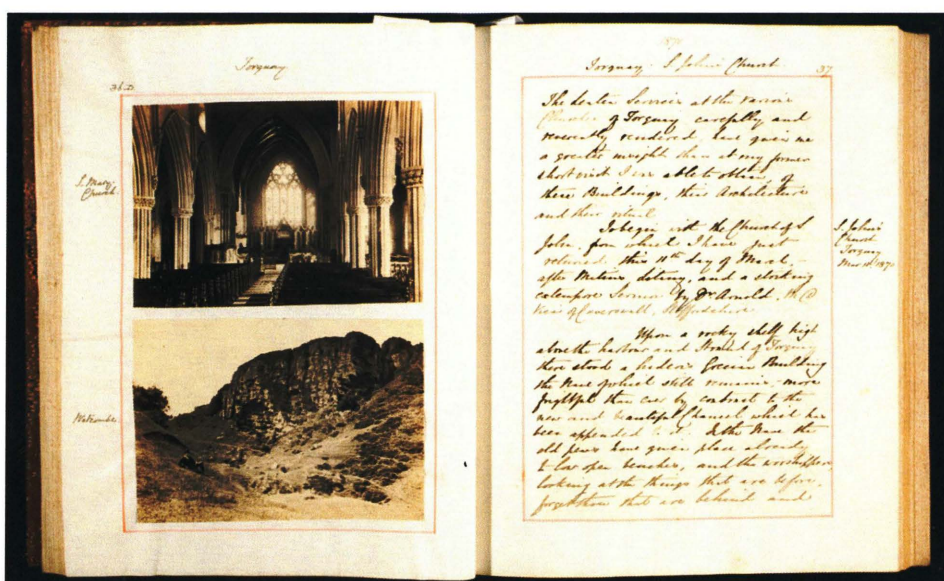 Torquay
36.D
S. Mary Church.
Watcombe
Torquay - S. John's Church.
37
The Lenten Services at the various
Churches of Torquay carefully and
reverently rendered, have given me
a greater insight than at my former
short visit I was able to obtain, of
these Buildings, their Architecture
and their ritual.
To begin with the Church of S.
John, from which I have just
returned this 11th day of March,
after Matins, Litany, and a striking
extempore Sermon by Dr. Arnold,
Vicar of Caverswall, Staffordshire
Upon a rocky shelf high
above the harbour and Strand of Torquay
there stood a hideous Grecian Building
the Nave of which still remains - more
frightful than ever by contrast to the
new and beautiful Chancel which has
been appended to it. In the Nave the
old pews have given place already
to low open benches, and the worshippers
looking at the things that are before,
forget those that are behind and
S. John's
Church
Torquay